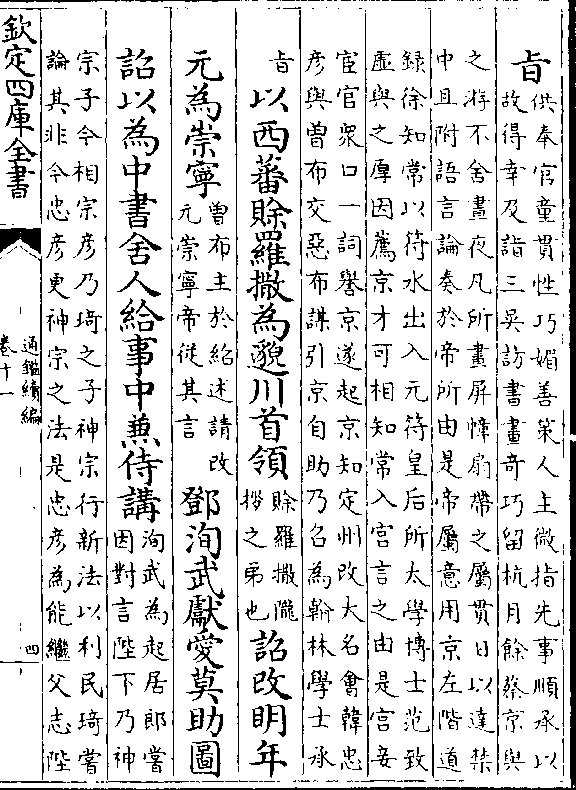 旨
供奉官童貫性巧媚善策人主微指先事順承以
故得幸及詣三吳訪書畫奇巧留杭月餘蔡京與
之游不舍晝夜凡所畫屏幛扇帶之屬貫日以達禁
中且附語言論奏於帝所由是帝屬意用京左階道
録徐知常以符水出入元符皇后所太學博士范致
虛與之厚因薦京才可相知常入宮言之由是宮妾
宦官衆口一詞譽京遂起京知定州改大名會韓忠
彥與曾布交惡布謀引京自助乃召為翰林學士承
旨
以西蕃賒羅撒為邈川首領
賒羅撒隴
拶之弟也
詔改明年
元為崇寧
曾布主於紹述請改
元崇寧帝從其言
鄧洵武獻愛莫助圖
詔以為中書舍人給事中兼侍講
洵武為起居郎嘗
因對言陛下乃神
宗子今相宗彥乃琦之子神宗行新法以利民琦嘗
論其非今忠彥更神宗之法是忠彥為能繼父志陛
欽定四庫全書
通鑑續編
卷十一
四